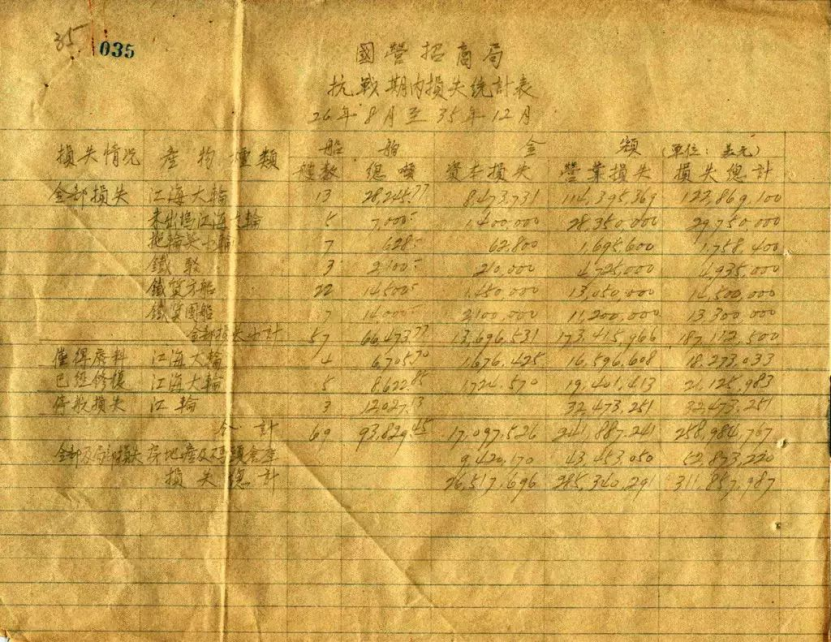 35 035
國營招商局
抗戰期內損失統計表
26年8月至35年12月
損失情況 產物種類 船舶 金額 (單位:美元)
艘數 總噸 資本損失 營業損失 損失總計
全部損失 江海大輪 13 28,245.77 8,473,731 114,395,369 122,869,100
未出塢江海大輪 5 7,000- 1,400,000 28,350,000 29,750,000
拖輪及小輪 7 628- 62,800 1,695,600 1,758,400
鐵駁 3 2,100- 210,000 4,725,000 4,935,000
鐵質方船 22 14,500- 1,450,000 13,050,000 14,500,000
鐵質躉船 7 14,000- 2,100,000 11,200,000 13,300,000
全部損失小計 57 66,473.77 13,696,531 173,415,966 187,112,500
僅得廢料 江海大輪 4 6,705.70 1,676,425 16,596,608 18,273,033
已經修復 江海大輪 5 8,622.85 1,724,570 19,401,413 21,125,983
停航損失 江輪 3 12,027.13 32,473,251 32,473,251
合計 69 93,829.45 17,097,526 241,887,241 258,984,767
全部及局部損失 房地產及碼頭倉庫 9,420,170 43,453,050 52,873,220
損失總計 26,517,696 285,340,291 311,857,987